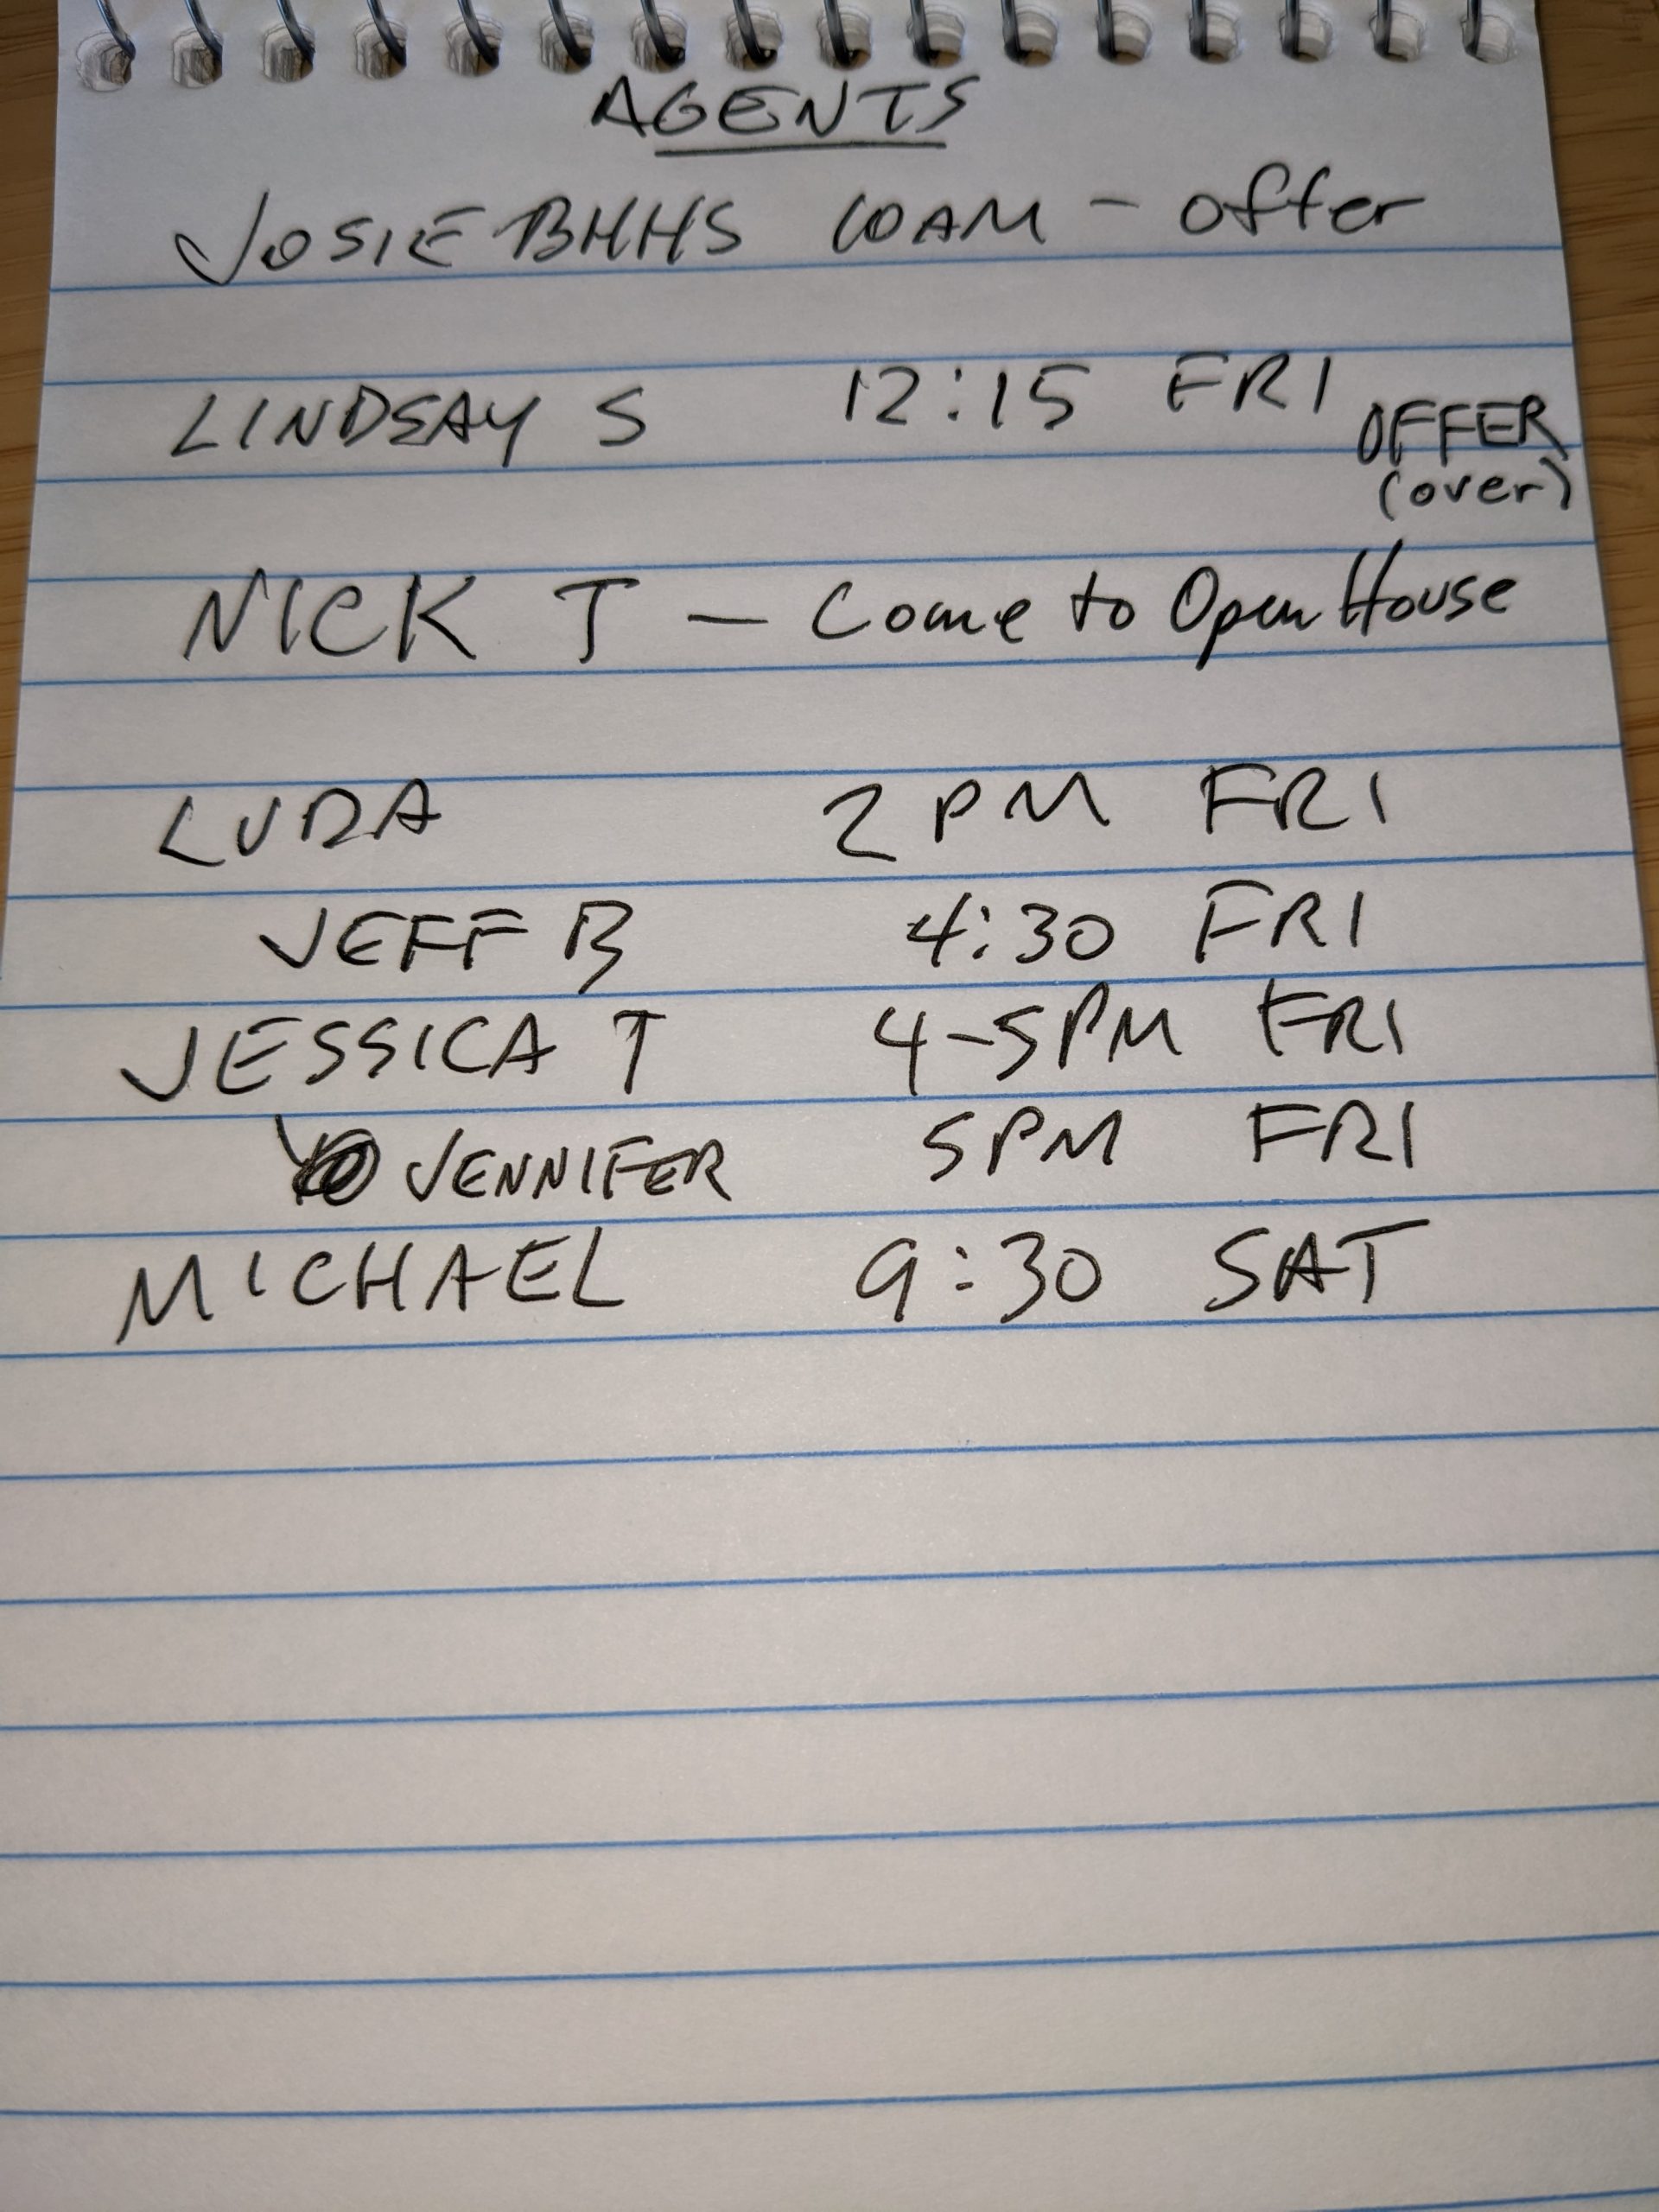 AGENTS
JOSIE BHHS 10AM - offer
LINDSAY S 12:15 FRI OFFER
(over)
NICK T — Come to Open House
LUDA 2 PM FRI
JEFF B 4:30 FRI
JESSICA T 4-5PM FRI
JENNIFER 5PM FRI
MICHAEL 9:30 SAT